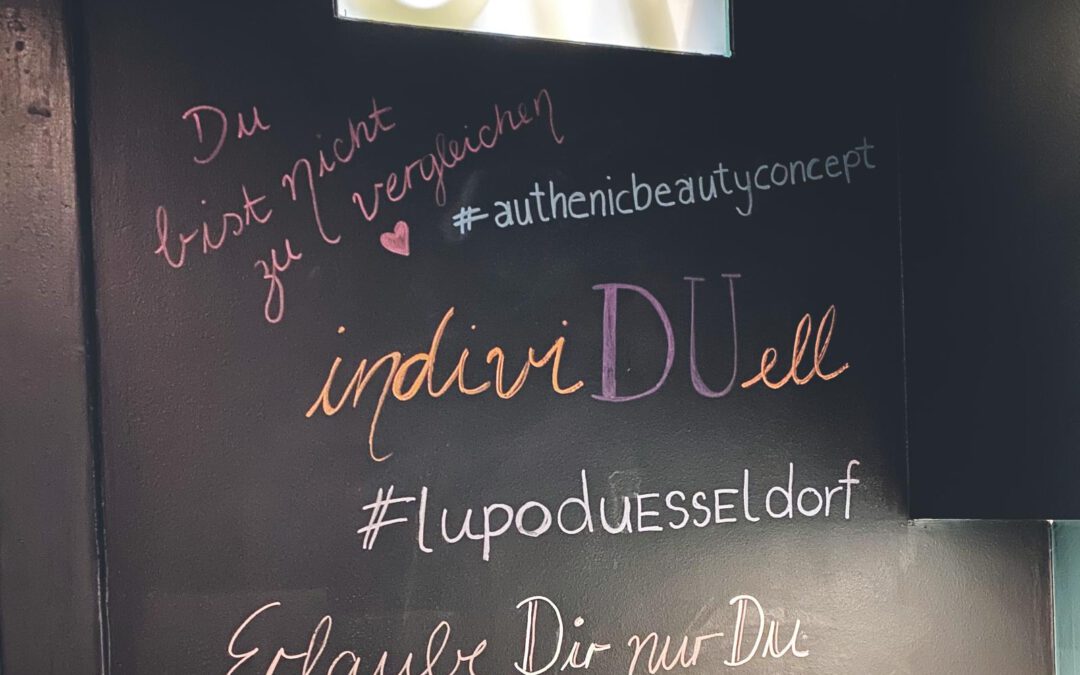 Du
bist nicht
zu vergleichen
#authenicbeautyconcept
indiviDUell
#lupoduESSEldorf
Erlaube Dir nur Du